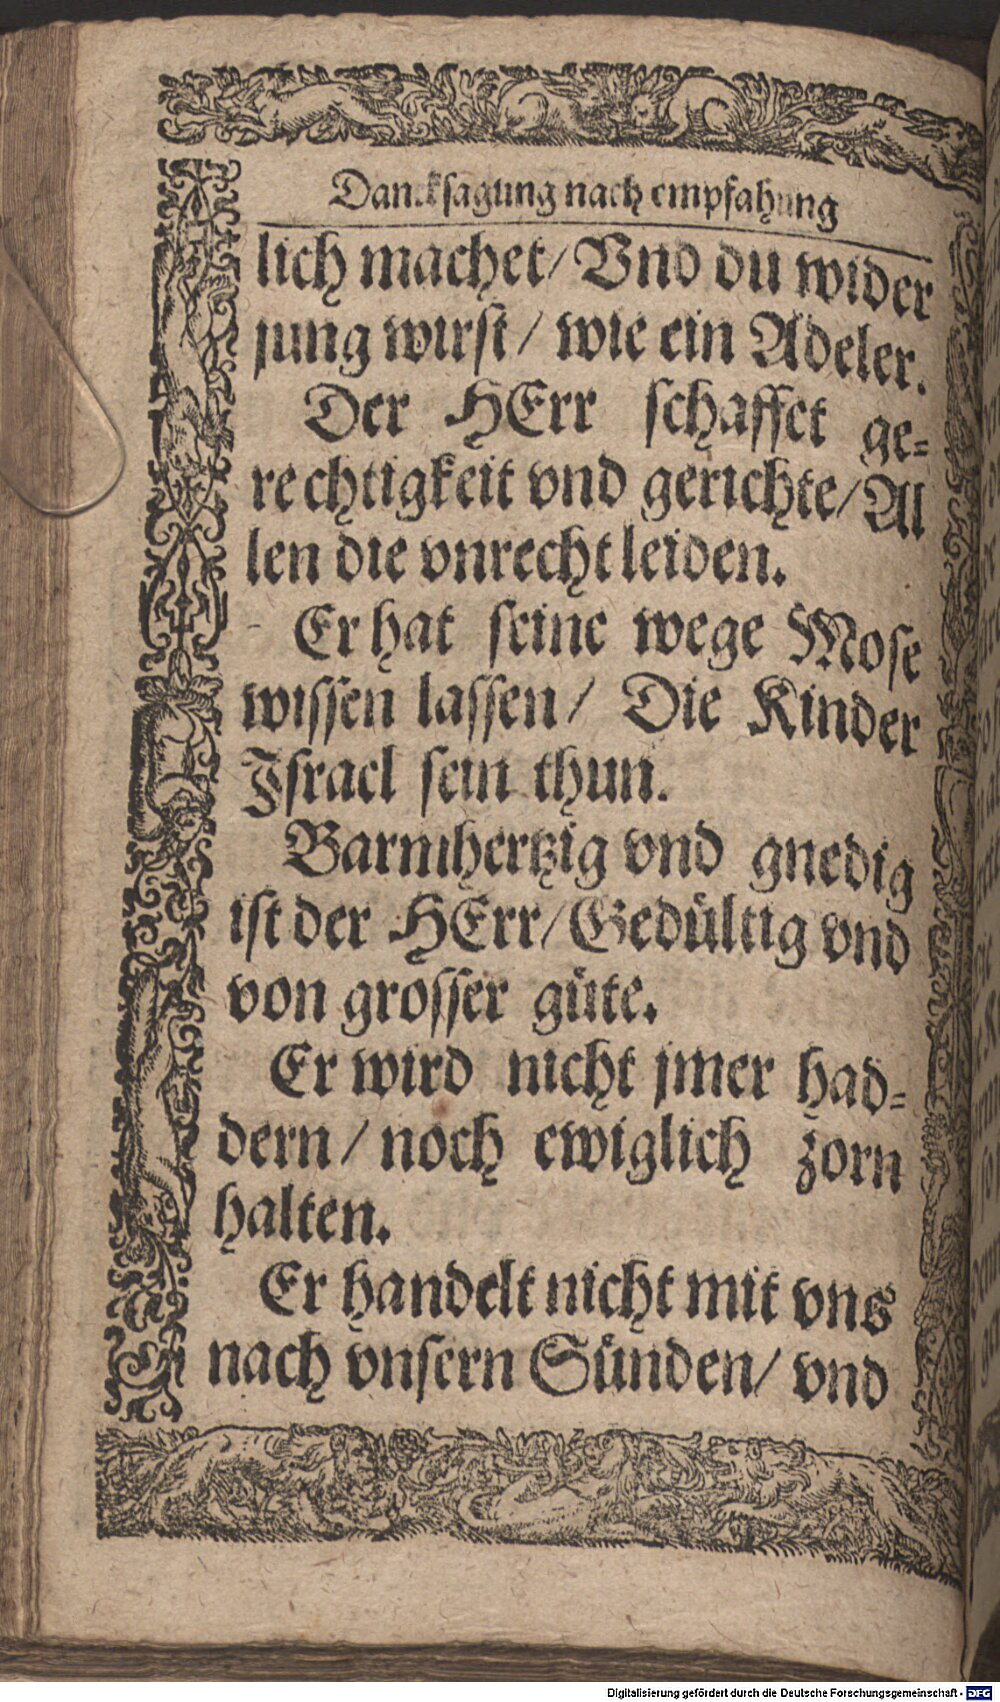 Dancksagung nach empfahung
lich machet/ Vnd du wider
jung wirst/ wie ein Adeler.
Der HErr schaffet ge-
rechtigkeit vnd gerichte/ Al
len die vnrecht leiden.
Er hat seine wege Mose
wissen lassen/ Die Kinder
Jsrael sein thun.
Barmhertzig vnd gnedig
ist der HErr/ Gedültig vnd
von grosser güte.
Er wird nicht jmer had-
dern/ noch ewiglich zorn
halten.
Er handelt nicht mit vns
nach vnsern Sünden/ vnd
Digitalisierung gefördert durch die Deutsche Forschungsgemeinschaft - DFG